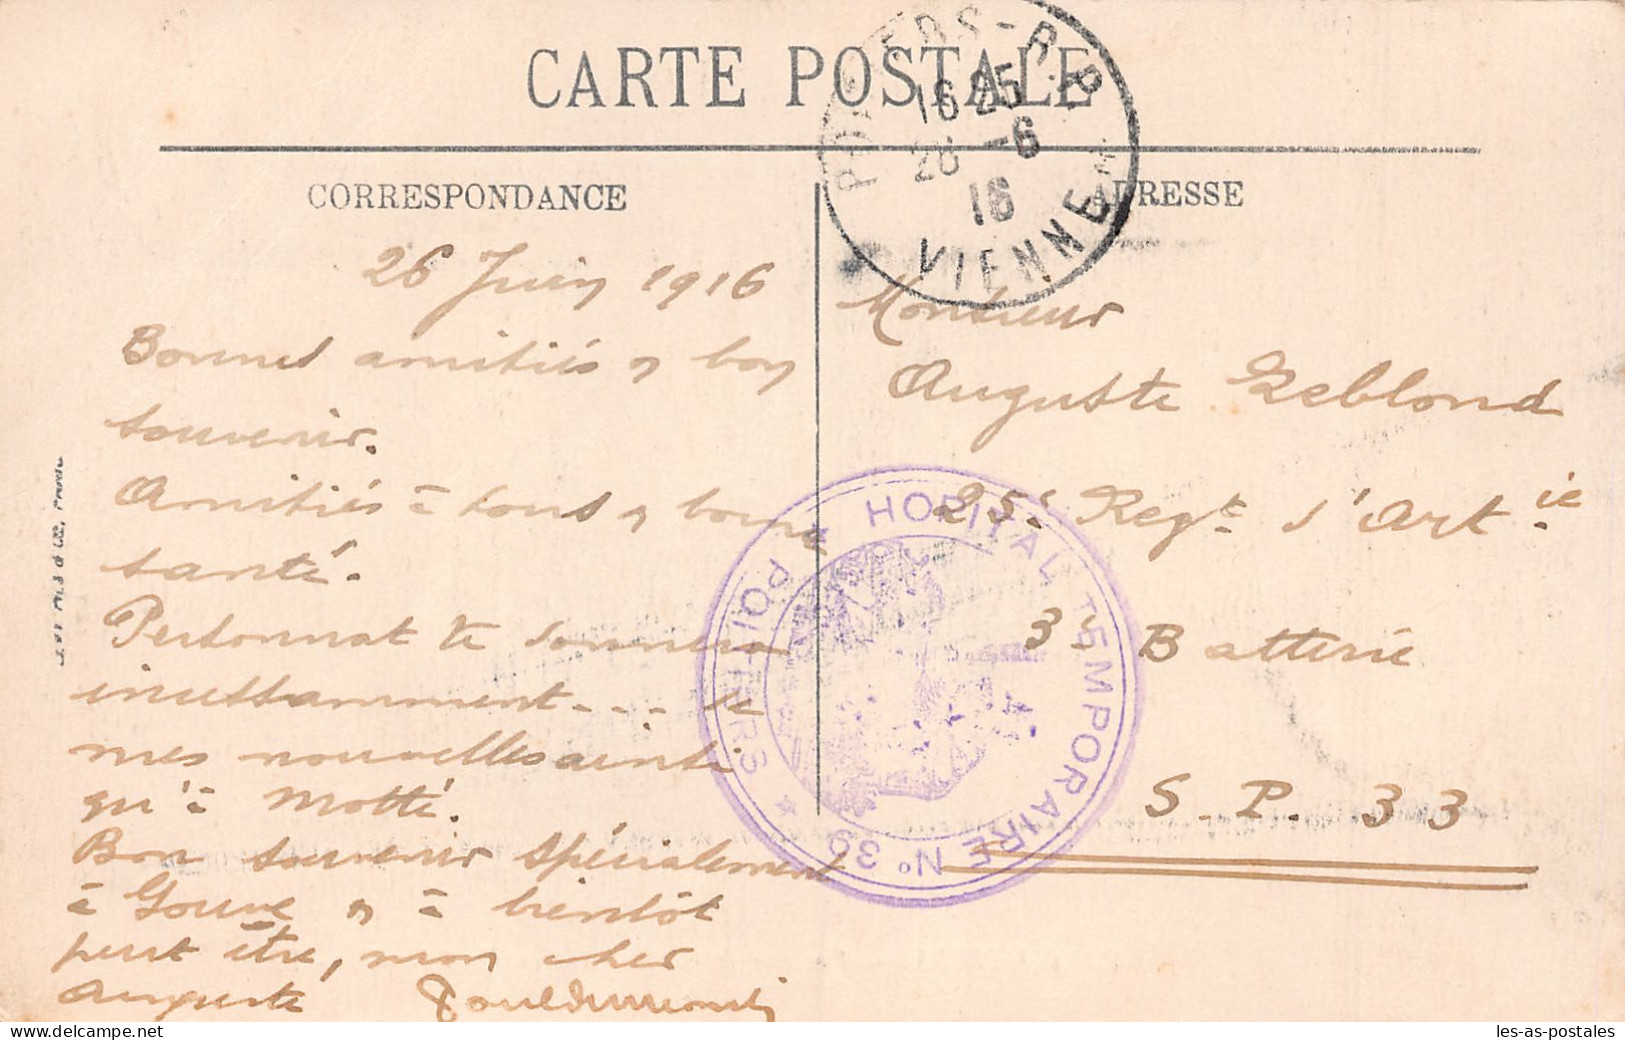 CARTE POSTALE
POITIERS-R.P.
16 25
26 -6
16
VIENNE
CORRESPONDANCE
ADRESSE
26 Juin 1916
Bonnes amitiés & bon
souvenir.
Amitiés à tous & bonne
santé.
Personnat te donnera
incessamment... de
mes nouvelles ainsi
qu'à Motté.
Bon souvenir spécialement
à Gouve & à bientôt
peut être, mon cher
Auguste
Monsieur
Auguste Leblond
25e Regt d'Artie
3e Batterie
S.P. 33
HOPITAL TEMPORAIRE N° 39
POITIERS
Delcampe.net
les-as-postales